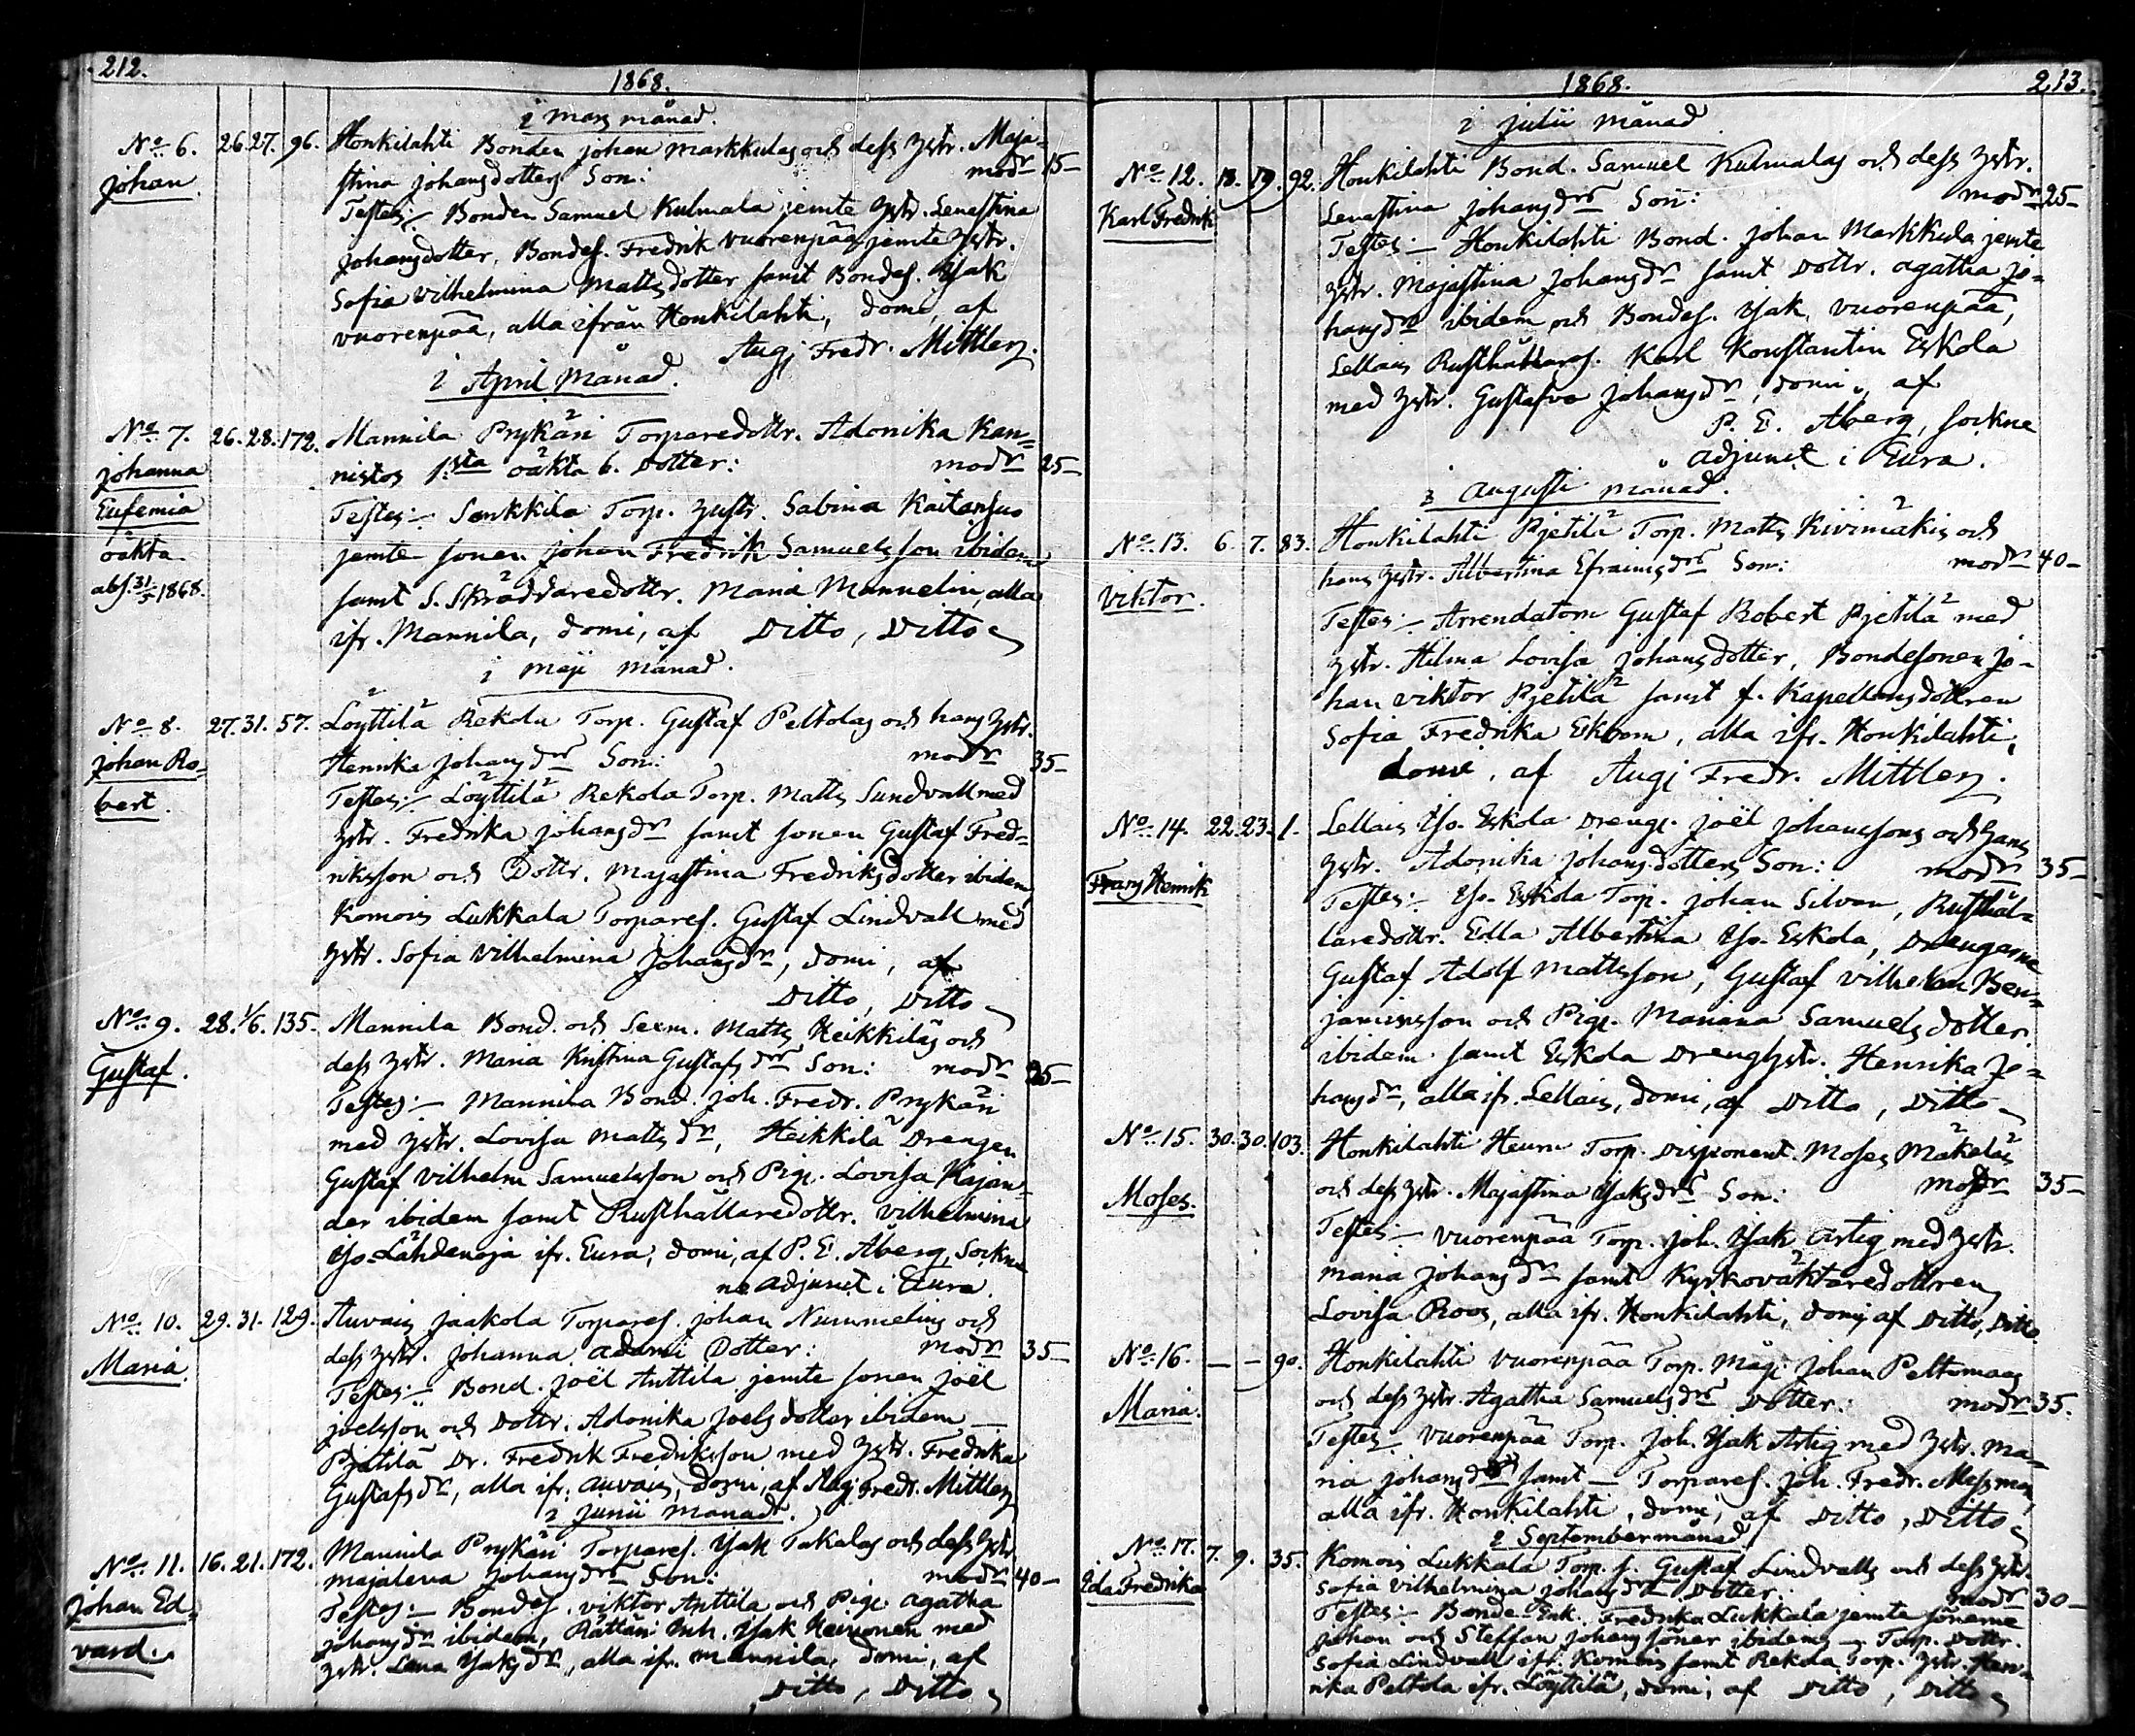 212.
1868.
i Mars månad.
No 6. 26. 27. 96. Honkilahti Bonden Johan Markkulas och dess hstr. Maja-
Johan stina Johansdotters Son: modr 15-
Testes:- Bonden Samuel Kulmala jemte hstr. Lenastina
Johansdotter, Bondes. Fredrik Vuorenpää jemte hstr.
Sofia Vilhelmina Mattsdotter samt Bondes. Isak
Vuorenpää, alla ifrån Honkilahti, domi, af
Augi Fredr. Mittler.
i April Månad.
No 7. 26. 28. 172. Mannila Prykäri Torparedottr. Adonika Kan=
Johanna nistos 1sta oäkta b. Dotter: modr 25-
Eufemia Testes:- Sonkkila Torp. hustr. Sabina Kaitansuo
oäkta jemte sonen Johan Fredrik Samuelsson ibidem
abs. 31/5 1868. samt S. Skräddaredottr. Maria Mannelin, alla
ifr. Mannila, domi, af Ditto, Ditto
i Maji månad.
No 8. 27. 31. 57. Löyttilä Rekola Torp. Gustaf Peltolas och hans hstr.
Johan Ro= Henrika Johansdrs Son: modr 35-
bert. Testes:- Löyttilä Rekola Torp. Matts Sundvall med
hstr. Fredrika Johansdr samt sonen Gustaf Fred=
riksson och Dottr. Majastina Fredriksdotter ibidem
Komois Lukkala Torpares. Gustaf Lindvall med
hstr. Sofia Vilhelmina Johansdr, domi, af
Ditto, Ditto
No 9. 28. 1/6. 135. Mannila Bond. och Sexm. Matts Heikkiläs och
Gustaf. dess hstr. Maria Kristina Gustafsdrs Son: modr 25-
Testes:- Mannila Bond. Joh. Fredr. Prykäri
med hstr. Lovisa Mattsdr, Heikkilä Drengen
Gustaf Vilhelm Samuelsson och Pig. Lovisa Kajan=
der ibidem samt Rusthållaredottr. Vilhelmina
Iso-Lähdenoja ifr. Eura, domi, af P. E. Åberg, Sockne
ne adjunct i Eura.
No 10. 29. 31. 129. Auvais Jaakola Torpares. Johan Nummelins och
Maria. dess hstr. Johanna Adami Dotter: modr 35-
Testes:- Bond. Joël Anttila jemte sonen Joël
Joelsson och Dottr. Adonika Joelsdotter ibidem
Pjetilä Dr. Fredrik Fredriksson med hstr. Fredrika
Gustafsdr, alla ifr. Auvais, domi, af Aug Fredr. Mittler
i Junii månad.
No 11. 16. 21. 172. Mannila Prykäri Torpares. Isak Takalas och dess hstr.
Johan Ed= Majalena Johansdrs Son: modr 40-
vard. Testes:- Bondes. Viktor Anttila och Pig. Agatha
Johansdr ibidem, Rättari Inh. Isak Heinonen med
hstr. Lena Isaksdr, alla ifr. Mannila, domi, af
Ditto, Ditto
1868. 213.
i Julii månad
No 12. 18. 19. 92. Honkilahti Bond. Samuel Kulmalas och dess hstr.
Karl Fredrik Lenastina Johansdrs Son: modr 25-
Testes:- Honkilahti Bond. Johan Markkula jemte
hstr. Majastina Johansdr samt Dottr. Agatha Jo=
hansdr ibidem och Bondes. Isak Vuorenpää,
Lellais Rusthållares. Karl Konstantin Eskola
med hstr. Gustafva Johansdr, domi, af
P. E. Åberg, sockne
adjunct i Eura.
i Augusti månad.
No 13. 6. 7. 83. Honkilahti Pjetilä Torp. Matts Kivimäkis och
Viktor. hans hstr. Albertina Efraimsdrs Son: modr 40-
Testes:- Arrendatorn Gustaf Robert Pjetilä med
hstr. Hilma Lovisa Johansdotter, Bondesonen Jo-
han Viktor Pjetilä samt f. Kapellansdottren
Sofia Fredrika Ekbom, alla ifr. Honkilahti,
domi, af Augi Fredr. Mittler.
No 14. 22. 23. 1. Lellais Iso-Eskola Drengs. Joël Johanssons och hans
Frans Henrik hstr. Adonika Johansdotters Son: modr 35-
Testes:- Iso-Eskola Torp. Johan Silvan, Rusthål=
laredottr. Edla Albertina Iso-Eskola, Drengarne
Gustaf Adolf Mattsson, Gustaf Vilhelm Ben=
jaminsson och Pig. Mariana Samuelsdotter
ibidem samt Eskola Drenghstr. Henrika Jo=
hansdr, alla ifr. Lellais, domi, af Ditto, Ditto
No 15. 30. 30. 103. Honkilahti Heurn Torp. Disponent. Moses Mäkeläs
Moses. och dess hstr. Majastina Isaksdrs Son: modr 35-
Testes:- Vuorenpää Torp. Joh. Isak Artig med hstr.
Maria Johansdr samt Kyrkoväktaredottren
Lovisa Roos, alla ifr. Honkilahti, domi, af Ditto, Ditto
No 16. - - 90. Honkilahti Vuorenpää Torp. Måg. Johan Peltomaas
Maria. och dess hstr. Agatha Samuelsdrs Dotter: modr 35.
Testes:- Vuorenpää Torp. Joh. Isak Artig med hstr. Ma=
ria Johansdr samt - Torpares. Joh. Fredr. Messman,
alla ifr. Honkilahti, domi, af Ditto, Ditto
i September månad
No 17. 7. 9. 35. Komois Lukkala Torp. s. Gustaf Lindvalls och dess hstr.
Ida Fredrika Sofia Vilhelmina Johansdrs Dotter: modr 30-
Testes:- Bonde Enk. Fredrika Lukkala jemte sönerne
Johan och Steffan Johans söner ibidem, Torp. Dottr.
Sofia Lindvall ifr. Komois samt Rekola Torp. hstr. Hen=
rika Peltola ifr. Löyttilä, domi, af Ditto, Ditto